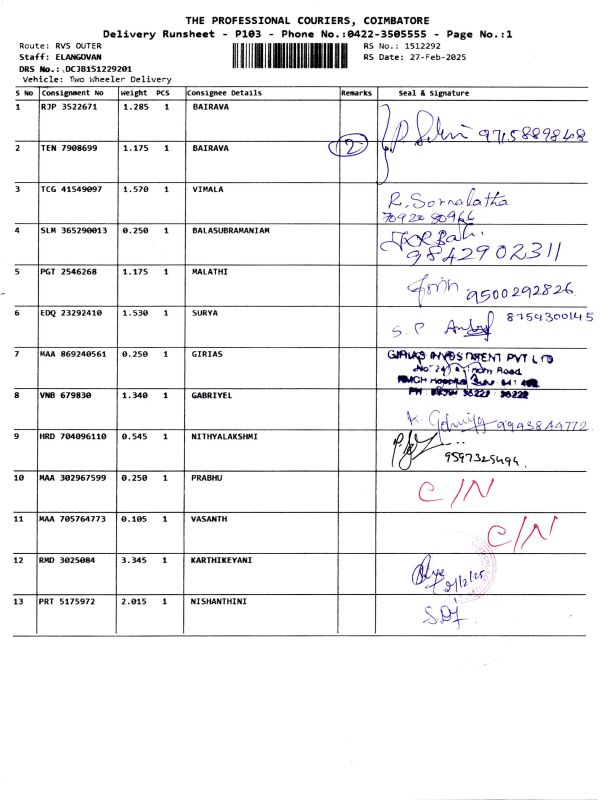 THE PROFESSIONAL COURIERS, COIMBATORE
Delivery Runsheet - P103 - Phone No.:0422-3505555 - Page No.:1
Route: RVS OUTER RS No.: 1512292
Staff: ELANGOVAN RS Date: 27-Feb-2025
DRS No.:.DCJB151229201
Vehicle: Two Wheeler Delivery
S No Consignment No Weight PCS Consignee Details Remarks Seal & Signature
1 RJP 3522671 1.285 1 BAIRAVA
2 TEN 7908699 1.175 1 BAIRAVA 2 9715889848
3 TCG 41549097 1.570 1 VIMALA R. Sornalatha
7092080966
4 SLM 365290013 0.250 1 BALASUBRAMANIAM
9842902311
5 PGT 2546268 1.175 1 MALATHI 9500292826
6 EDQ 23292410 1.530 1 SURYA 8759300145
S. P
7 MAA 869240561 0.250 1 GIRIAS GIRIAS INVESTMENT PVT LTD
Road
8 VNB 679830 1.340 1 GABRIYEL K.
9 HRD 704096110 0.545 1 NITHYALAKSHMI
9597325494
10 MAA 302967599 0.250 1 PRABHU C/N
11 MAA 705764773 0.105 1 VASANTH C/N
12 RMD 3025084 3.345 1 KARTHIKEYANI
13 PRT 5175972 2.015 1 NISHANTHINI